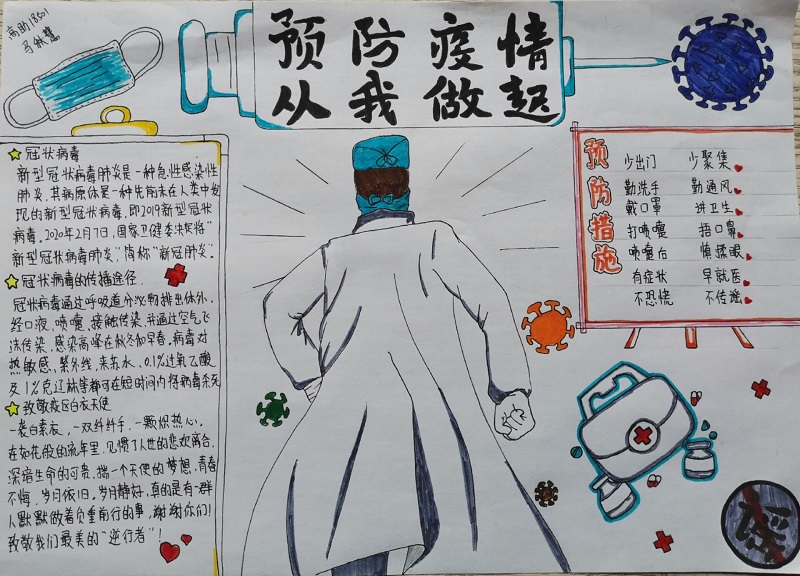 高助18501
预防疫情
从我做起
冠状病毒
新型冠状病毒肺炎是一种急性感染性
肺炎,其病原体是一种先前未在人类中发
现的新型冠状病毒,即2019新型冠状
病毒。2020年2月7日,国家卫健委决定将"
新型冠状病毒肺炎"简称"新冠肺炎"。
冠状病毒的传播途径
冠状病毒通过呼吸道分泌物排出体外,
经口液,喷嚏,接触传染,并通过空气飞
沫传染,感染高峰在秋冬和早春,病毒对
热敏感,紫外线,来苏水,0.1%过氧乙酸
及1%克辽林等都可在短时间内将病毒杀死
致敬疫区白衣天使
一袭白素衣,一双纤纤手,一颗炽热心,
在如花般的流年里,见惯了人世的悲欢离合,
深谙生命的可贵,揣一个天使的梦想,青春
不悔,岁月依旧。岁月静好,真的是有一群
人默默做着负重前行的事,谢谢你们!
致敬我们最美的"逆行者"!
预防措施
少出门 少聚集
勤洗手 勤通风
戴口罩 讲卫生
打喷嚏 捂口鼻
喷嚏后 慎揉眼
有症状 早就医
不恐慌 不传谣